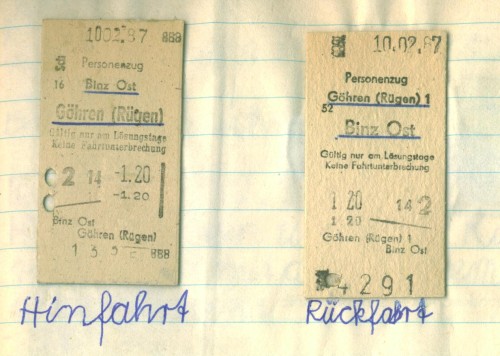 1002.87
Personenzug
16 Binz Ost
Göhren (Rügen)
Gültig nur am Lösungstage
Keine Fahrtunterbrechung
2 14 -1.20
-1.20
Binz Ost
Göhren (Rügen)
Hinfahrt
10.02.87
Personenzug
Göhren (Rügen) 1
52
Binz Ost
Gültig nur am Lösungstage
Keine Fahrtunterbrechung
1.20 14 2
1 20
Göhren (Rügen) 1
Binz Ost
4291
Rückfahrt